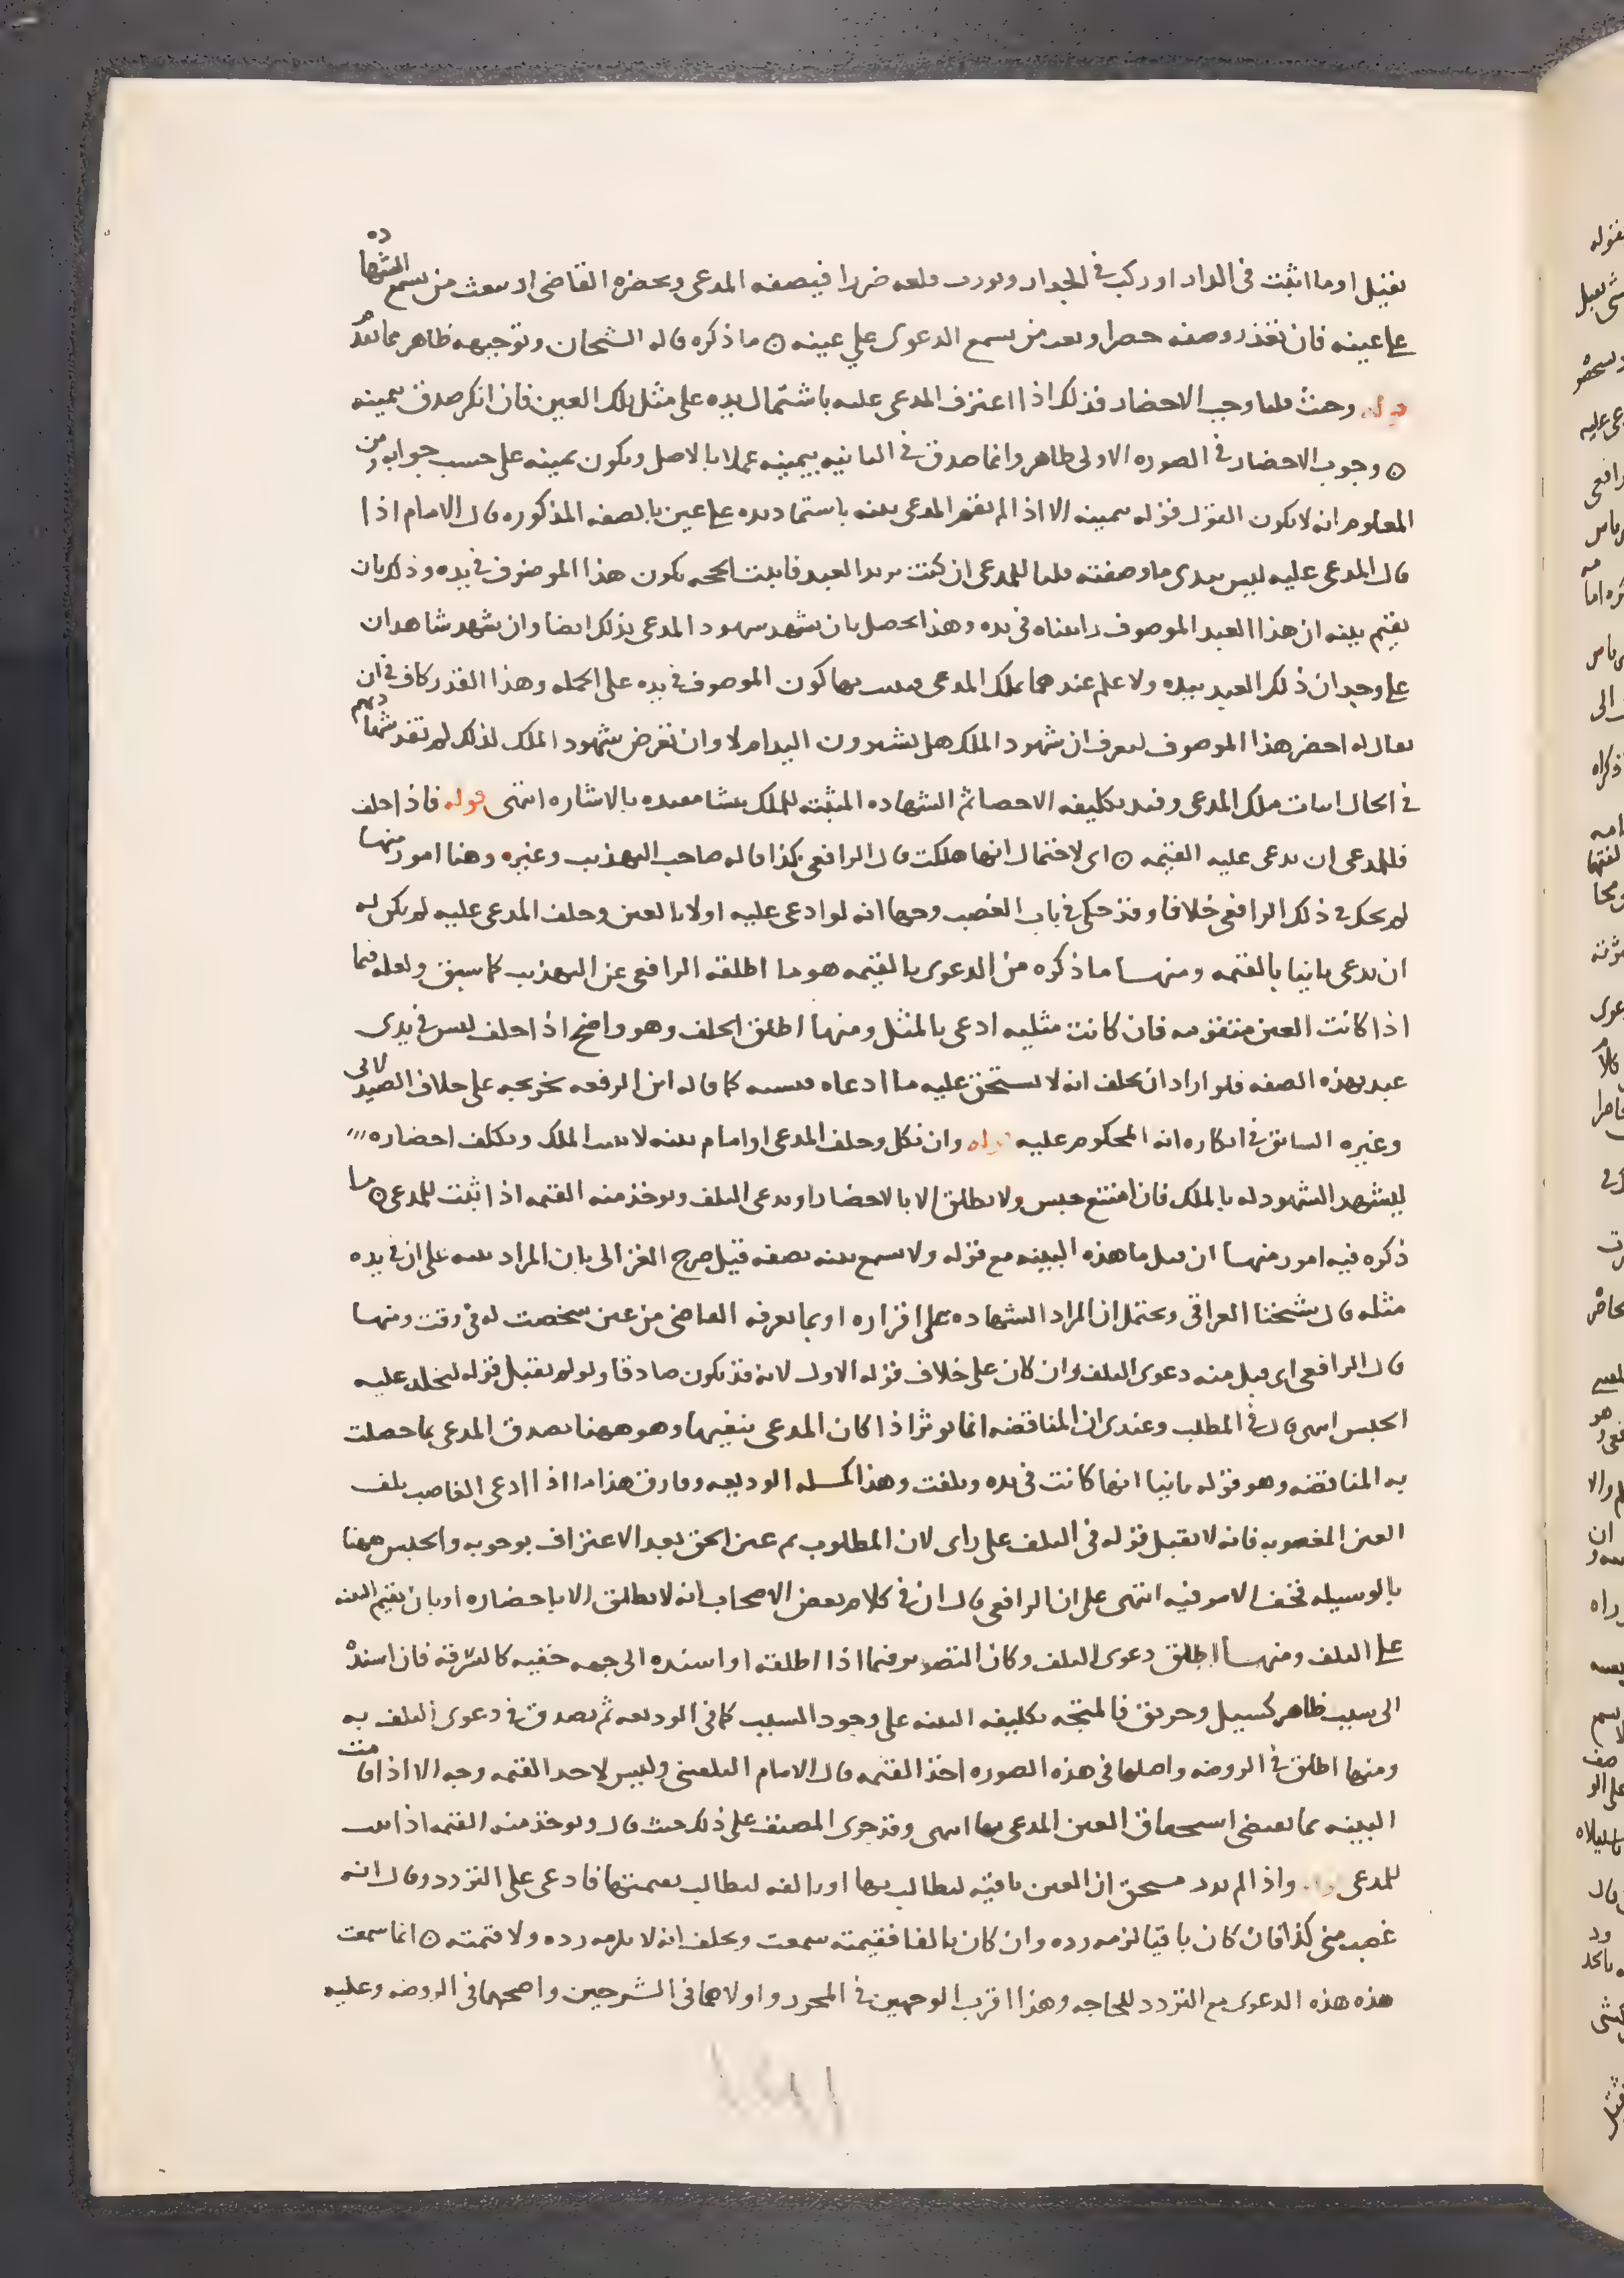 ثقيل او ما اثبت في الدار او ركب في الجدار ويورث قلعه ضررا فيصفه المدعي ويحضره القاضي او يبعث من يسمع الشهاده
على عينه فان تعذر وصفه حضر او بعث من يسمع الدعوى على عينه ۞ ما ذكره قاله الشيخان وتوجيهه ظاهر مما تقدم
قوله وحيث قلنا وجب الاحضار فذلك اذا اعترف المدعى عليه باشتمال يده على مثل تلك العين فان انكر صدق بيمينه
۞ وجوب الاحضار في الصوره الاولى ظاهر وانما صدق في الثانيه بيمينه عملا بالاصل ويكون يمينه على حسب جوابه ومن
المعلوم انه لا يكون القول قوله بيمينه الا اذا لم يقم المدعي بينه باشتمال يده على عين بالصفه المذكوره قال الامام اذا
قال المدعى عليه ليس بيدي ما وصفته قلنا للمدعي ان كنت تريد العبد فاثبت الحجه بكون هذا الموصوف في يده وذلك بان
يقيم بينه ان هذا العبد الموصوف رايناه في يده وهذا يحصل بان يشهد شهود المدعي بذلك ايضا وان شهد شاهدان
على وجه ان ذلك العبد بيده ولا علم عندهما بملك المدعي فيثبت بها كون الموصوف في يده على الجمله وهذا القدر كاف في ان
يقال له احضر هذا الموصوف ليعرف ان شهود الملك هل يشيرون اليه ام لا وان تعرض شهود الملك لذلك لم تفد شهادتهم
في الحال اثبات ملك المدعي وتفيد تكليفه الاحضار ثم الشهاده المثبته للملك ينشا مقيده بالاشاره انتهى قوله فاذا حلف
فللمدعي ان يدعي عليه القيمه ۞ اي لاحتمال انها هلكت قال الرافعي كذا قاله صاحب التهذيب وغيره وهنا امور منها
لم يحك في ذلك الرافعي خلافا وقد حكى في باب الغصب وجها انه لو ادعى عليه اولا بالعين وحلف المدعى عليه لم يكن له
ان يدعي ثانيا بالقيمه ومنها ما ذكره من الدعوى بالقيمه هو ما اطلقه الرافعي عن التهذيب كما سبق ولعله فيما
اذا كانت العين متقومه فان كانت مثليه ادعى بالمثل ومنها اطلق الحلف وهو واضح اذا حلف ليس في يدي
عبد بهذه الصفه فلو اراد ان يحلف انه لا يستحق عليه ما ادعاه فيشبه كما قاله ابن الرفعه تخريجه على خلاف الصيدلاني
وغيره السابق في انكاره انه المحكوم عليه قوله وان نكل وحلف المدعي او اقام بينه لا تثبت الملك وكلف احضاره
ليشهد الشهود له بالملك فان امتنع حبس ولا يطلق الا بالاحضار او يدعي التلف ويوخذ منه القيمه اذا ثبت للمدعي ۞ ما
ذكره فيه امور منها ان قيل ما هذه البينه مع قوله ولا تسمع بينه بصفه قيل صرح الغزالي بان المراد بينه على ان في يده
مثله قال شيخنا العراقي ويحتمل ان المراد الشهاده على اقراره او بما يعرفه القاضي من عين شخصت له في وقت ومنها
قال الرافعي اي قبل منه دعوى التلف وان كان على خلاف قوله الاول لانه قد يكون صادقا ولو لم نقبل قوله لتخلد عليه
الحبس انتهى قال في المطلب وعندي ان المناقضه انما توثر اذا كان المدعي بنفيها وهو ههنا يصدق المدعي بما حصلت
به المناقضه وهو قوله ثانيا انها كانت في يده وتلفت وهذا كمسله الوديعه وفارق هذا ما اذا ادعى الغاصب تلف
العين المغصوبه فانه لا يقبل قوله في التلف على راي لان المطلوب ثم عين الحق بعد الاعتراف بوجوبه والحبس ههنا
بالوسيله فخف الامر فيه انتهى على ان الرافعي قال ان في كلام بعض الاصحاب انه لا يطلق الا باحضاره او بان يقيم البينه
على التلف ومنها اطلق دعوى التلف وكان التصوير فيما اذا اطلقه او اسنده الى جهه خفيه كالسرقه فان اسنده
الى سبب ظاهر كسيل وحريق فالمتجه تكليفه البينه على وجود السبب كما في الوديعه ثم يصدق في دعوى التلف به
ومنها اطلق في الروضه واصلها في هذه الصوره اخذ القيمه قال الامام البلقيني وليس لاخذ القيمه وجه الا اذا قامت
البينه بما يقتضي استحقاق العين المدعى بها انتهى وقد جرى المصنف على ذلك حيث قال ويوخذ منه القيمه اذا ثبت
للمدعي قوله واذا لم يدر مستحق ان العين باقيه ليطالب بها او تالفه ليطالب بقيمتها فادعى على التردد وقال انه
غصب مني كذا فان كان باقيا لزمه رده وان كان تالفا فقيمته سمعت ويحلف انه لا يلزمه رده ولا قيمته ۞ انما سمعت
هذه هذه الدعوى مع التردد للحاجه وهذا اقرب الوجهين في المحرر واولاهما في الشرحين واصحهما في الروضه وعليه